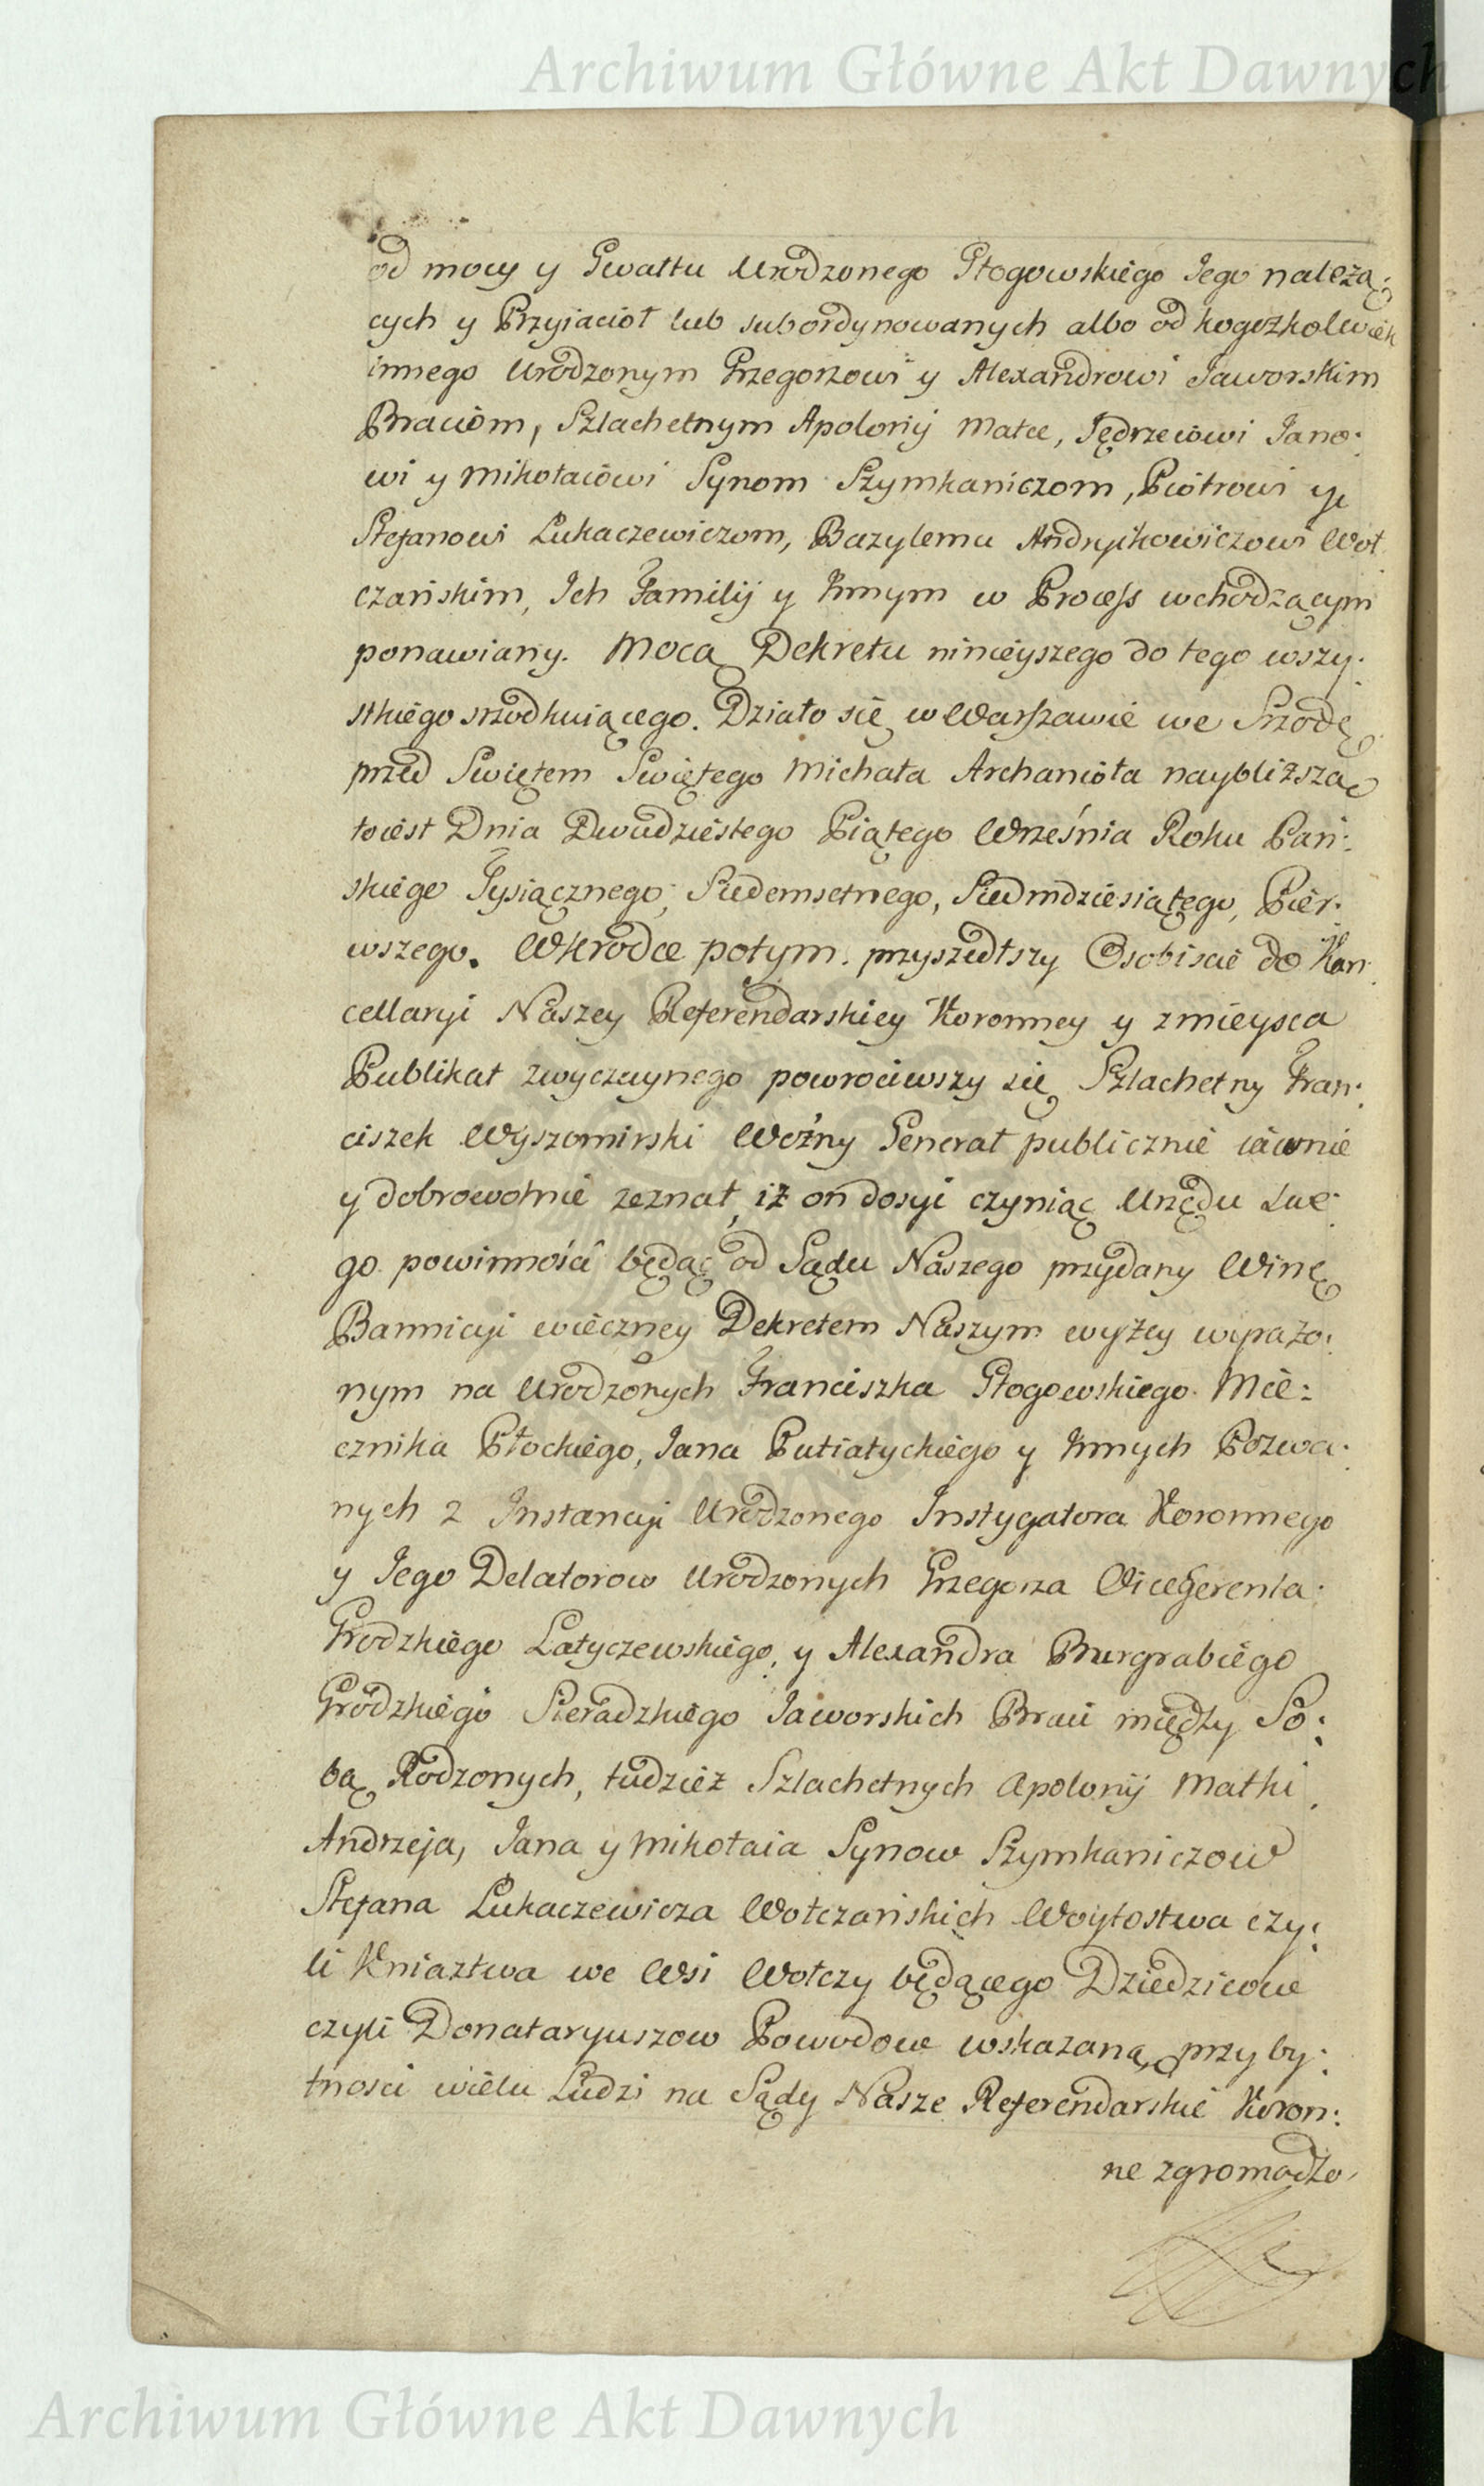 Archiwum Główne Akt Dawnych
od mocy y Gwałtu Urodzonego Głogowskiego Jego należą:
cych y Przyiacioł lub subordynowanych albo od kogożkolwiek
innego Urodzonym Grzegorzowi y Alexandrowi Jaworskim
Braciom, Szlachetnym Apolonij Matce, Jędrzeiowi Jano:
wi y Mikołaiowi Synom Szymkaniczom, Piotrowi y
Stefanowi Łukaczewiczom, Bazylemu Andryikowiczowi Woł
czańskim, Ich Familij y Innym w Process wchodzącym
ponawiany. Mocą Dekretu ninieyszego do tego wszy:
stkiego srzodkuiącego. Działo się w Warszawie we Srzodę
przed Swiętem Swiętego Michała Archanioła naybliższą
to iest Dnia Dwudziestego Piątego Września Roku Pań:
skiego Tysiącznego, Siedemsetnego, Siedmdziesiątego, Pier:
wszego. Wkrodce potym. przyszedłszy Osobiscie do Kan:
cellaryi Naszey Referendarskiey Koronney y z mieysca
Publikat zwyczaynego powrociwszy się Szlachetny Fran:
ciszek Wyszomirski Woźny Generał publicznie iawnie
y dobrowolnie zeznał, iż on dosyi czyniąc Urzędu swe:
go powinności będąc od Sądu Naszego przydany Winę
Bannicyi wieczney Dekretem Naszym wyżey wyrażo:
nym na Urodzonych Franciszka Głogowskiego Mie:
cznika Płockiego, Jana Putiatyckiego y Innych Pozwa:
nych z Instancyi Urodzonego Instygatora Koronnego
y Jego Delatorow Urodzonych Grzegorza Vicegerenta:
Grodzkiego Latyczewskiego, y Alexandra Burgrabiego
Grodzkiego Sieradzkiego Jaworskich Braci między So:
bą Rodzonych, tudzież Szlachetnych Apolonij Matki,
Andrzeja, Jana y Mikołaia Synow Szymkaniczow
Stefana Łukaczewicza Wołczańskich Woytostwa czy:
li Kniaztwa we Wsi Wołczy będącego Dziedzicow
czyli Donataryuszow Powodow wskazaną, przy by:
tności wielu Ludzi na Sądy Nasze Referendarskie Koron:
ne zgromadzo
Archiwum Główne Akt Dawnych